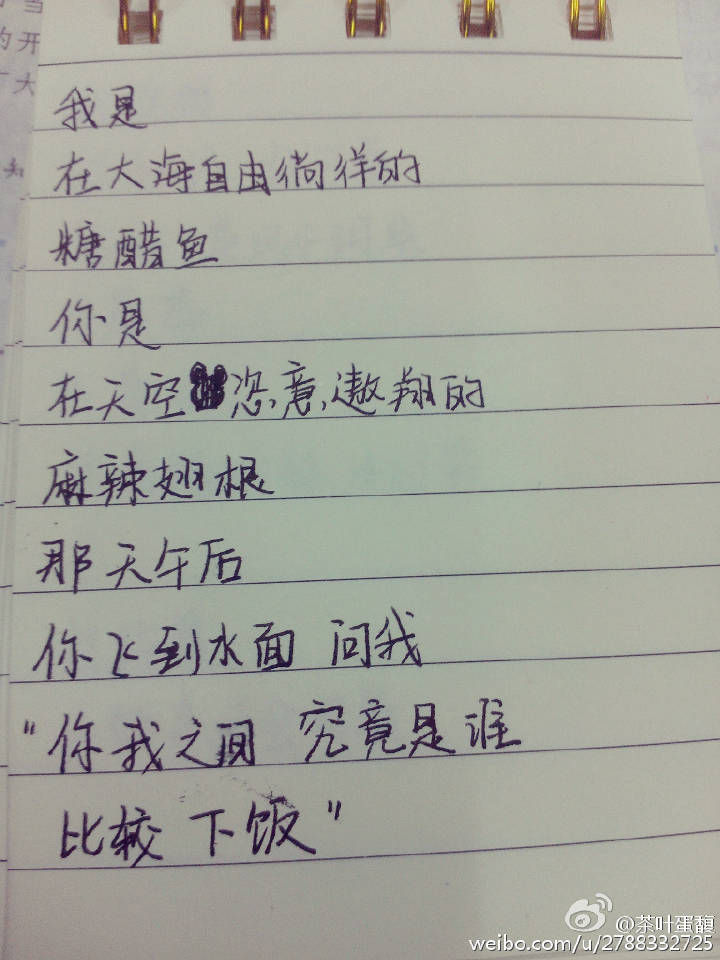 当
的开
大
知
我是
在大海自由徜徉的
糖醋鱼
你是
在天空恣意遨翔的
麻辣翅根
那天午后
你飞到水面 问我
"你我之间 究竟是谁
比较 下饭"
@茶叶蛋馥
weibo.com/u/2788332725